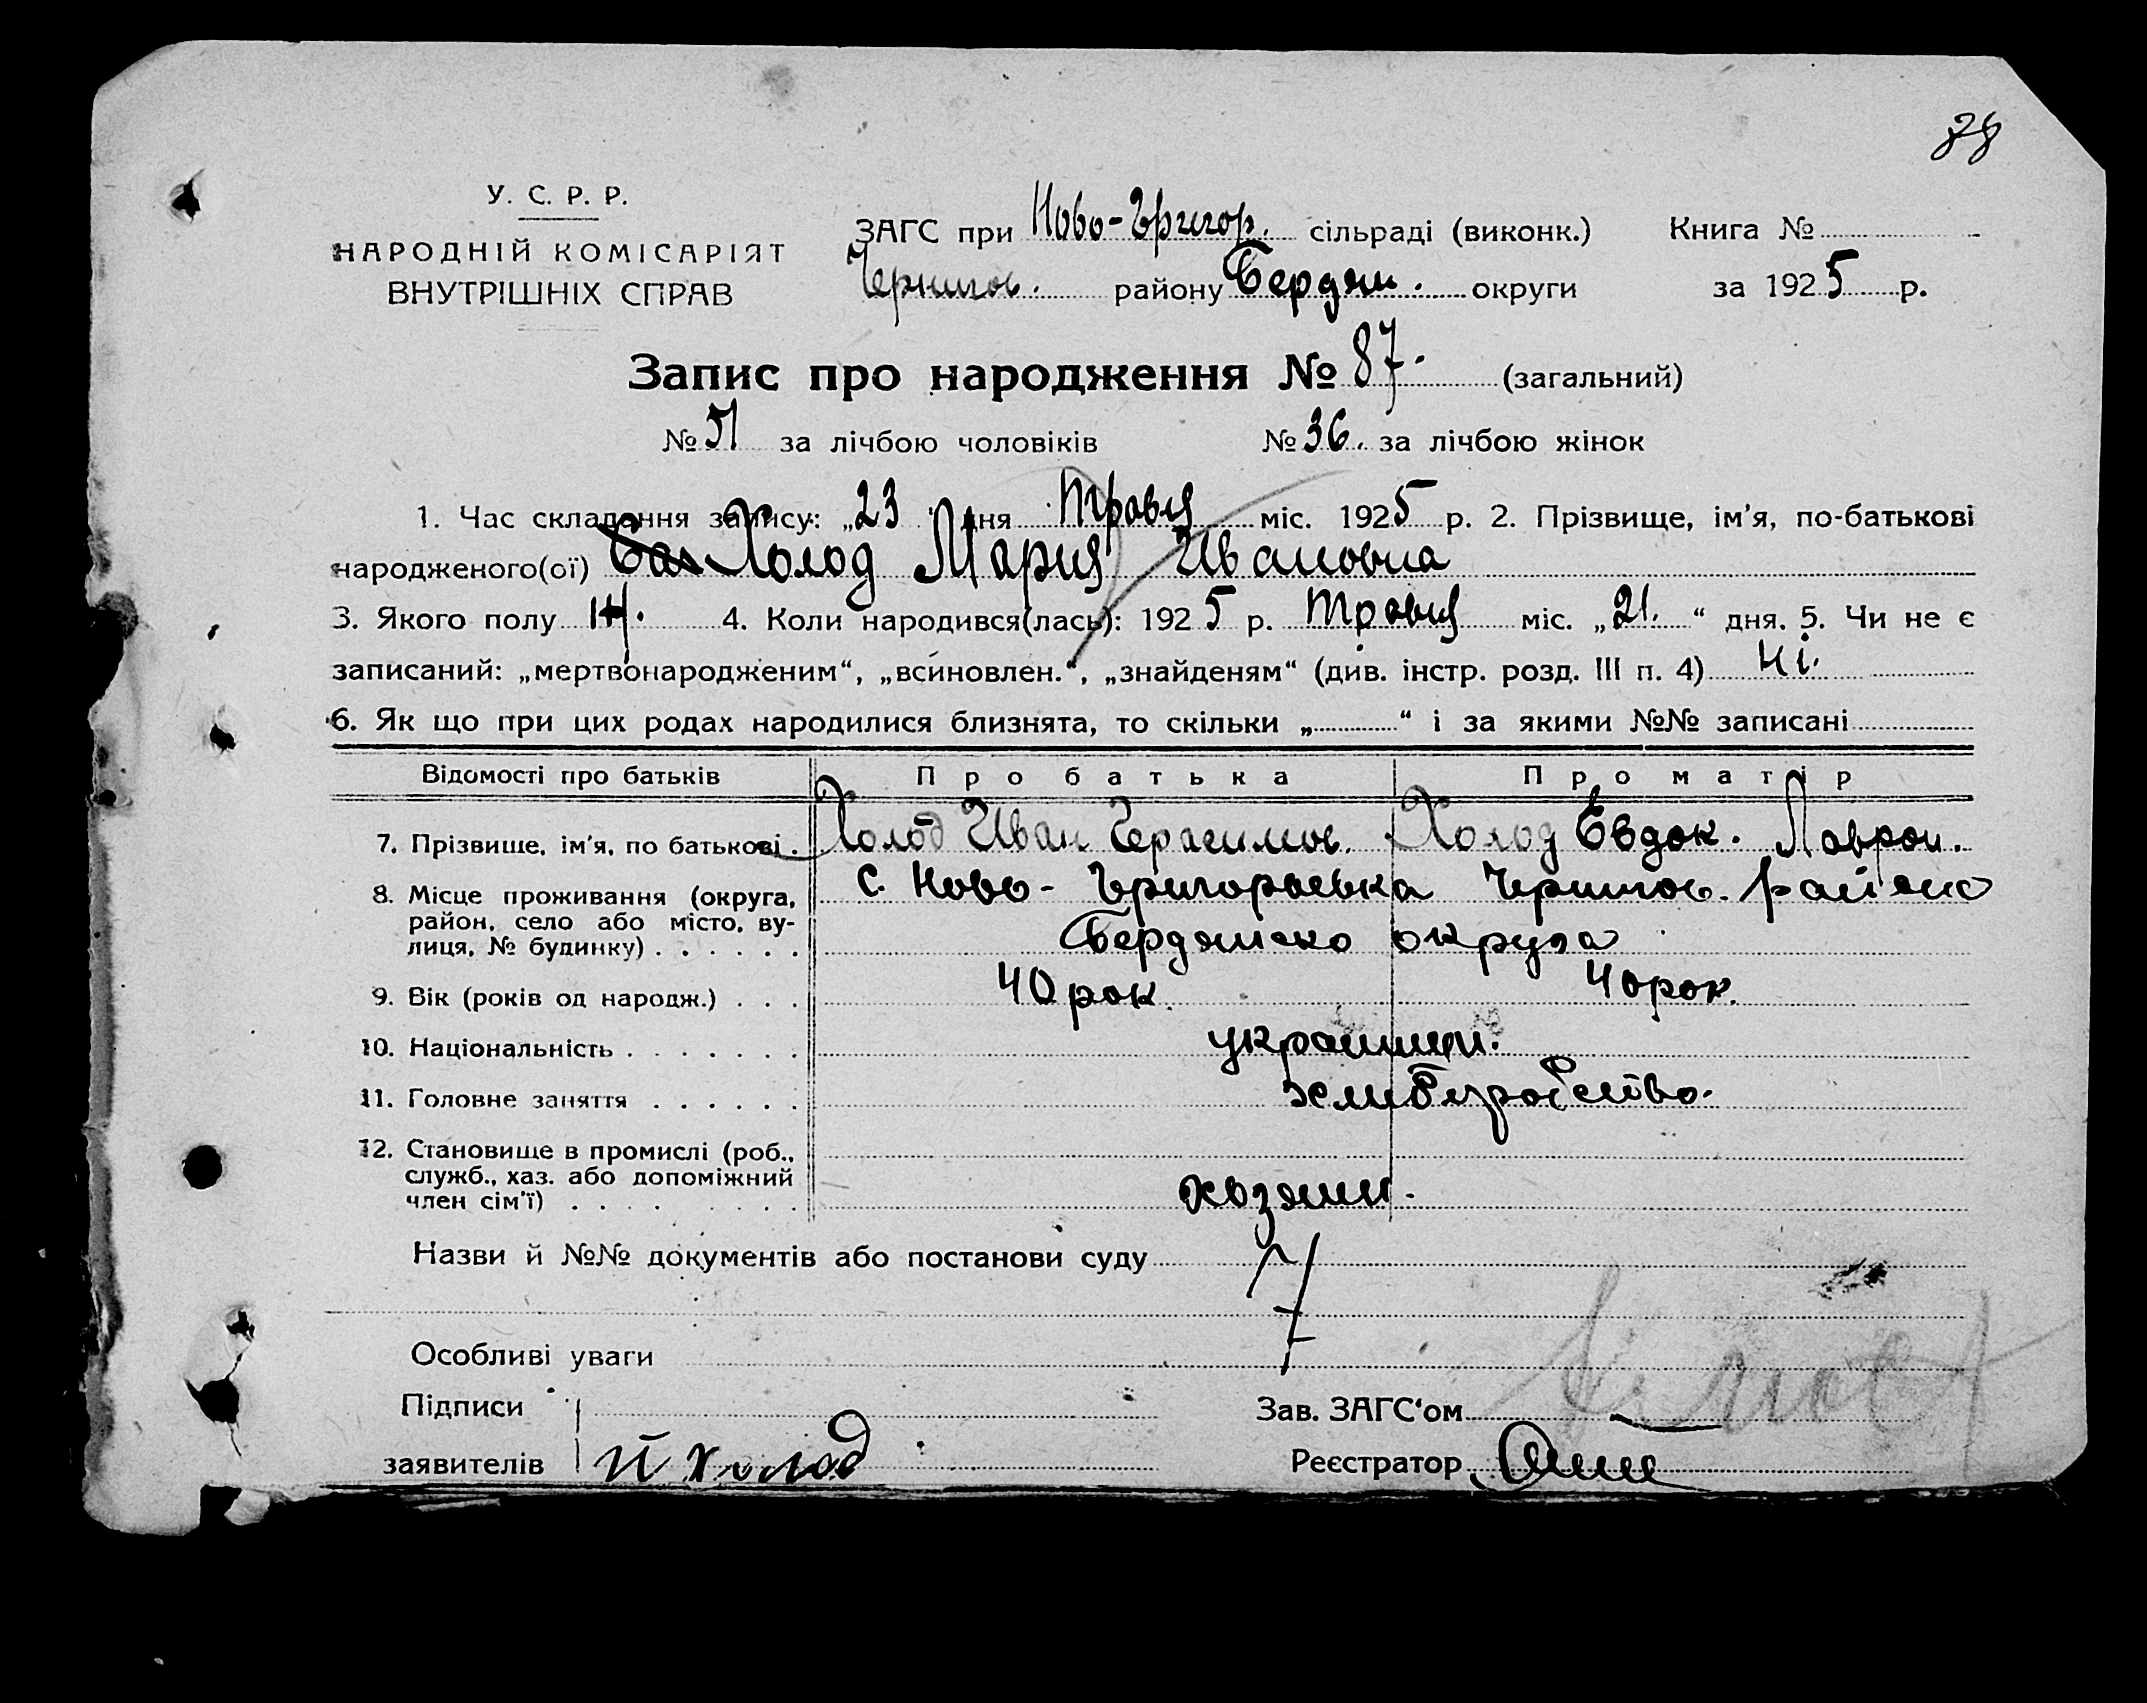 У. С. Р. Р.
НАРОДНІЙ КОМІСАРІЯТ
ВНУТРІШНІХ СПРАВ
ЗАГС при Ново-Григор. сільраді (виконк.) Книга №
Чернигов. району Бердян. округи за 1925 р.
Запис про народження № 87. (загальний)
№ 51 за лічбою чоловіків № 36. за лічбою жінок
1. Час складання запису: „23 дня Травня міс. 1925 р. 2. Прізвище, ім'я, по-батькові
народженого(ої) Холод Мария Ивановна
3. Якого полу Ж. 4. Коли народився(лась): 1925 р. Травня міс. „21.“ дня. 5. Чи не є
записаний: „мертвонародженим“, „всиновлен.“, „знайденям“ (див. інстр. розд. III п. 4) Ні.
6. Як що при цих родах народилися близнята, то скільки „ “ і за якими №№ записані
Відомості про батьків Про батька Про матір
7. Прізвище, ім'я, по батькові. Холод Иван Герасимов. Холод Евдок. Лаврен.
8. Місце проживання (округа, район, село або місто, вулиця, № будинку) с. Ново-Григорьевка Чернигов. району
Бердянско округа
9. Вік (років од народж.) 40 рок. 40 рок.
10. Національність украинци.
11. Головне заняття
12. Становище в промислі (роб., служб., хаз. або допоміжний член сім'ї) хозяин.
Назви й №№ документів або постанови суду
Особливі уваги
Підписи
Зав. ЗАГС'ом
заявителів И Холод
Реєстратор